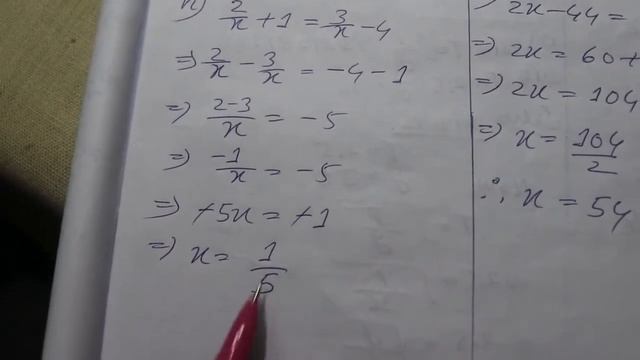 n) 2/x + 1 = 3/x - 4
⇒ 2/x - 3/x = -4 - 1
⇒ 2-3/x = -5
⇒ -1/x = -5
⇒ +5x = +1
⇒ x = 1/5
2x - 44 =
⇒ 2x = 60 +
⇒ 2x = 104
⇒ x = 104/2
∴ x = 54